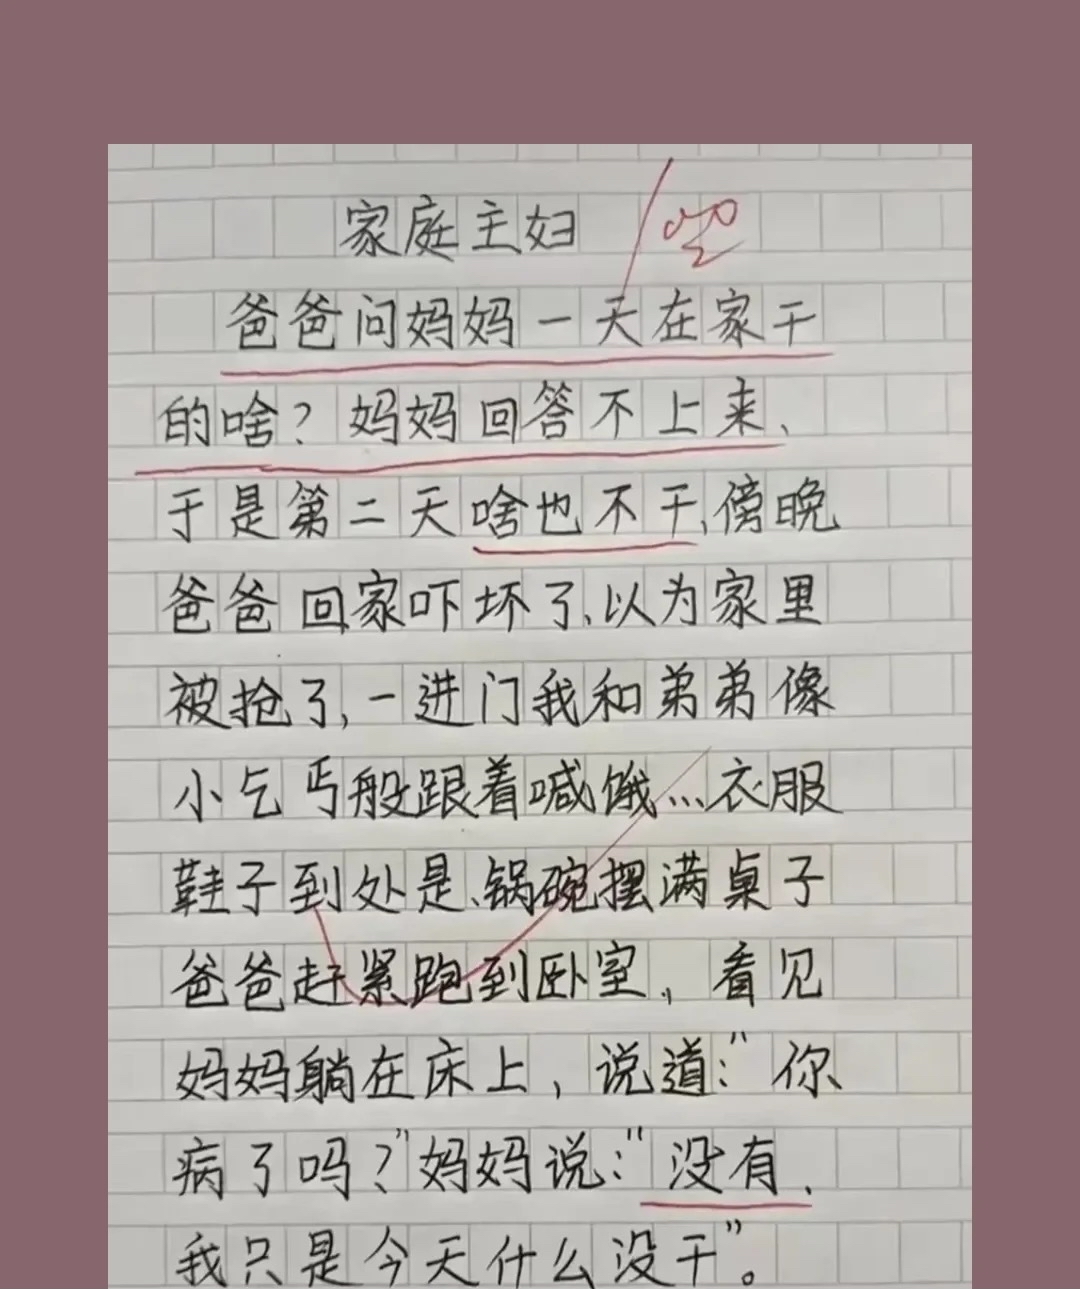 家庭主妇
爸爸问妈妈一天在家干
的啥？妈妈回答不上来、
于是第二天啥也不干、傍晚
爸爸回家吓坏了、以为家里
被抢了，一进门我和弟弟像
小乞丐般跟着喊饿…衣服
鞋子到处是、锅碗摆满桌子
爸爸赶紧跑到卧室，看见
妈妈躺在床上，说道："你
病了吗？"妈妈说："没有、
我只是今天什么没干"。